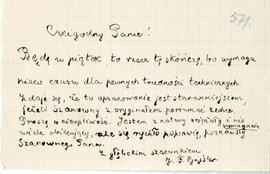 571.
Czcigodny Panie!
Będę w piątek to rzecz tę skończę, bo wymaga
nieco czasu dla pewnych trudności technicznych
Zdaje się, że to opracowanie jest staranniejszem,
jeżeli Szanowny z oryginałem porównać zechce
Proszę o cierpliwość. Jestem z natury
wymagania
wiele obiecujący, ale się rychło poprawię,
Szanownego Pana.
Z głębokim szacunkiem